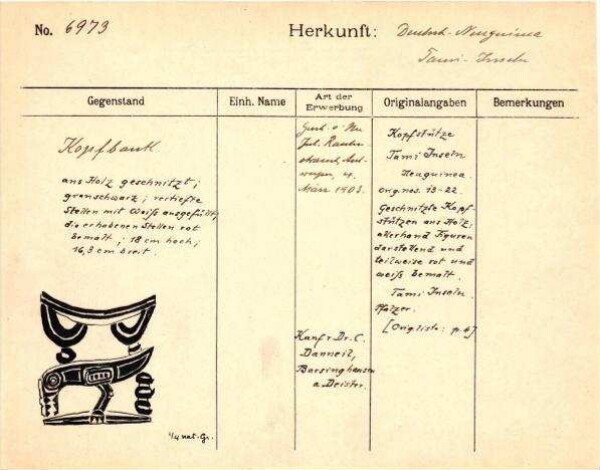 No. 6973
Herkunft: Deutsch-Neuguinea
Tami-Inseln
Gegenstand
Einh. Name
Art der
Erwerbung
Originalangaben
Bemerkungen
Kopfbank
aus Holz geschnitzt;
grauschwarz; vertiefte
Stellen mit Weiß ausgefüllt;
die erhobenen Stellen rot
bemalt; 18 cm hoch;
16,3 cm breit.
¼ nat. Gr.
Mai 1903.
Kauf v Dr. C.
Danneil,
Barsinghausen
a. Deister.
Kopfstütze
Tami Inseln
Neuguinea
orig. nos. 13-22.
Geschnitzte Kopf-
stützen aus Holz,
allerhand Figuren
darstellend und
teilweise rot und
weiß bemalt.
Tami Inseln
Pfalzer.
[Orig. liste: p. 6]